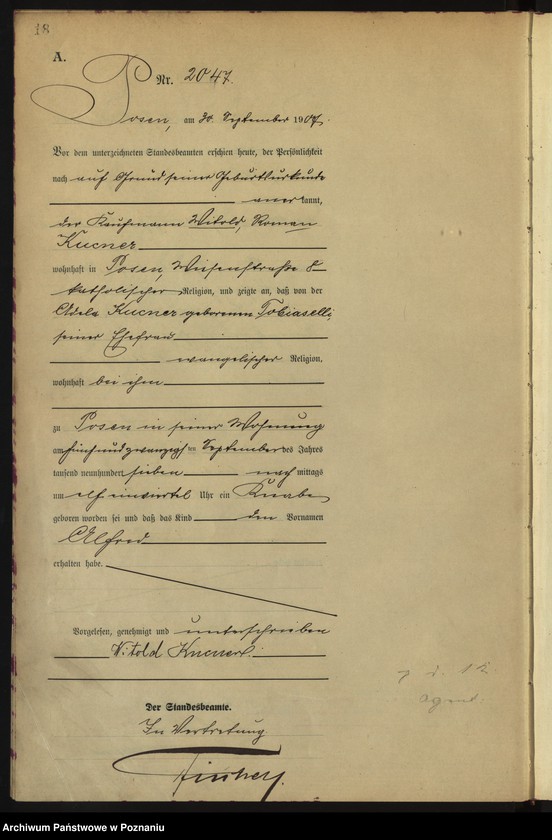 18
A.
Nr. 2047.
Posen, am 30. September 1907.
Vor dem unterzeichneten Standesbeamten erschien heute, der Persönlichkeit
nach auf Grund seiner Geburtsurkunde
anerkannt,
der Kaufmann Witold, Roman
Kucner
wohnhaft in Posen, Wiesenstraße 8
katholischer Religion, und zeigte an, daß von der
Adela Kucner geborenen Tobiaselli,
seiner Ehefrau
evangelischer Religion,
wohnhaft bei ihm
zu Posen in seiner Wohnung
am fünfundzwanzigsten September des Jahres
tausend neunhundert sieben nach mittags
um elf einviertel Uhr ein Knabe
geboren worden sei und daß das Kind den Vornamen
Alfred
erhalten habe.
Vorgelesen, genehmigt und unterschrieben
Witold Kucner.
Der Standesbeamte.
In Vertretung
Archiwum Państwowe w Poznaniu